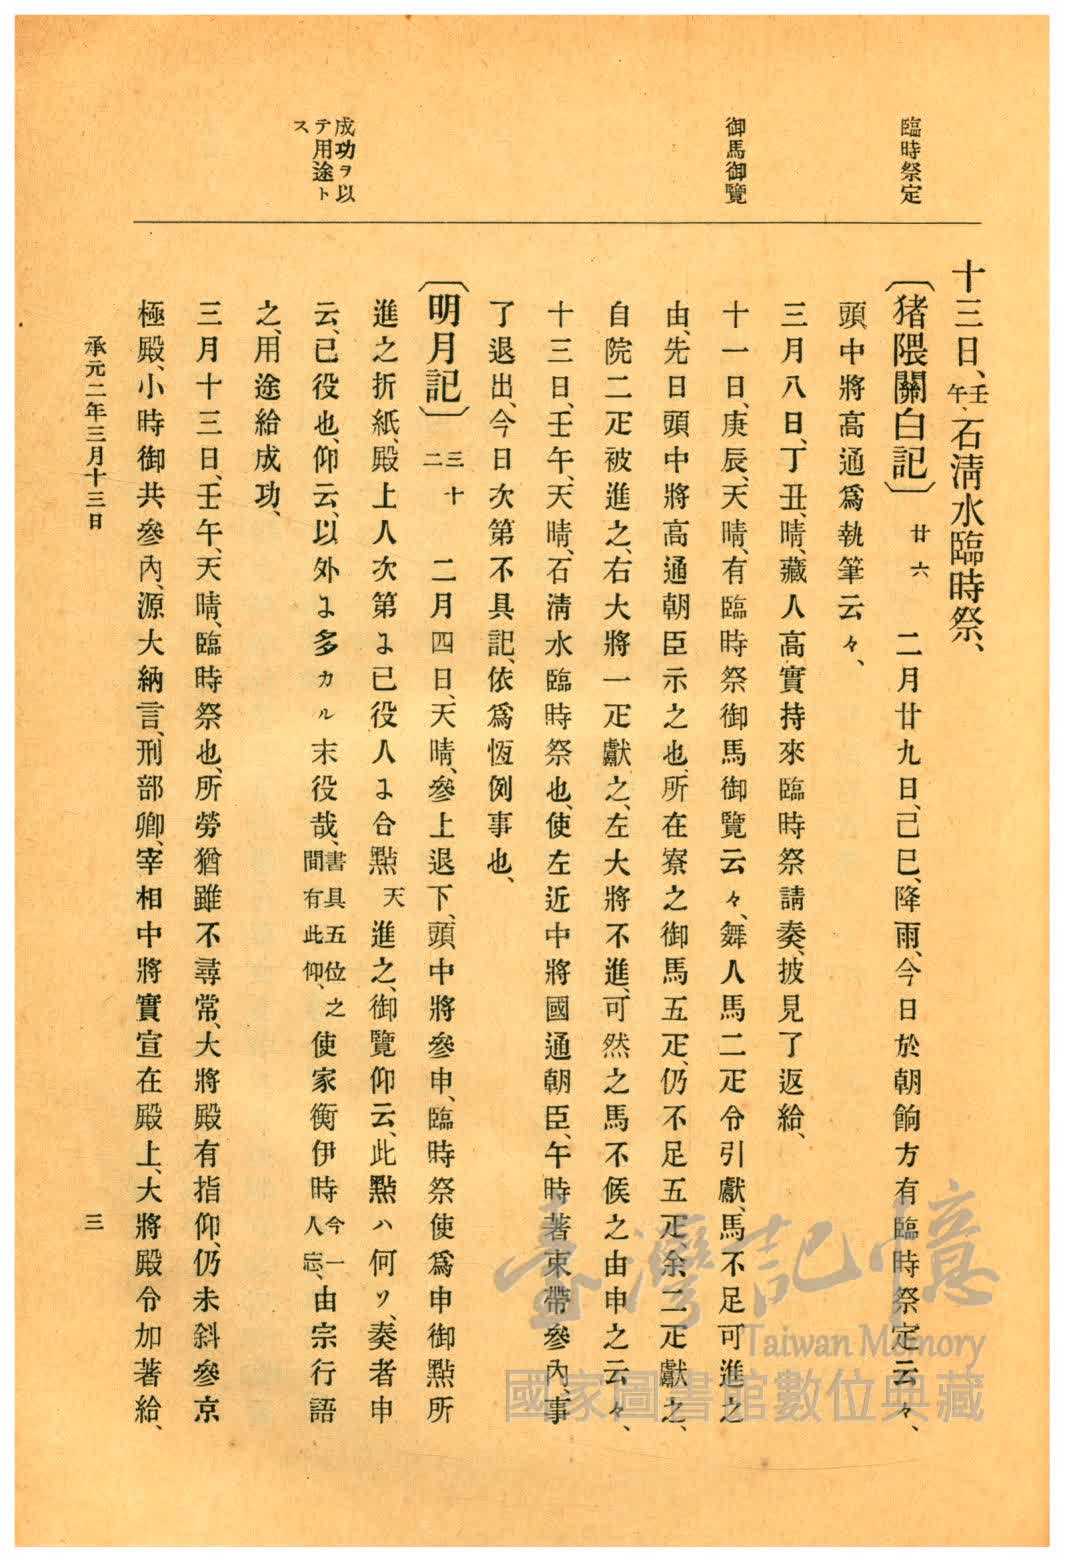 臨時祭定
御馬御覽
成功ヲ以
テ用途ト
ス
十三日、壬午、石淸水臨時祭、
〔猪隈關白記〕廿六 二月廿九日、己巳、降雨、今日於朝餉方有臨時祭定云々、
頭中將高通爲執筆云々、
三月八日、丁丑、晴、藏人高實持來臨時祭請奏、披見了返給、
十一日、庚辰、天晴、有臨時祭御馬御覽云々、舞人馬二疋令引獻、馬不足可進之
由、先日頭中將高通朝臣示之也、所在寮之御馬五疋、仍不足五疋、余二疋獻之、
自院二疋被進之、右大將一疋獻之、左大將不進、可然之馬不候之由申之云々、
十三日、壬午、天晴、石淸水臨時祭也、使左近中將國通朝臣、午時著束帶參內、事
了退出、今日次第不具記、依爲恆例事也、
〔明月記〕三十二 二月四日、天晴、參上退下、頭中將參申、臨時祭使爲申御點所
進之折紙、殿上人次第ニ已役人ニ合點天進之、御覽仰云、此點ハ何ソ、奏者申
云、已役也、仰云、以外ニ多カル末役哉、書具五位之間有此仰、使家衡伊時今一人忘、由宗行語
之、用途給成功、
三月十三日、壬午、天晴、臨時祭也、所勞猶雖不尋常、大將殿有指仰、仍未斜參京
極殿、小時御共參內、源大納言、刑部卿、宰相中將實宣在殿上、大將殿令加著給、
承元二年三月十三日
三
臺灣記憶
Taiwan Memory
國家圖書館數位典藏